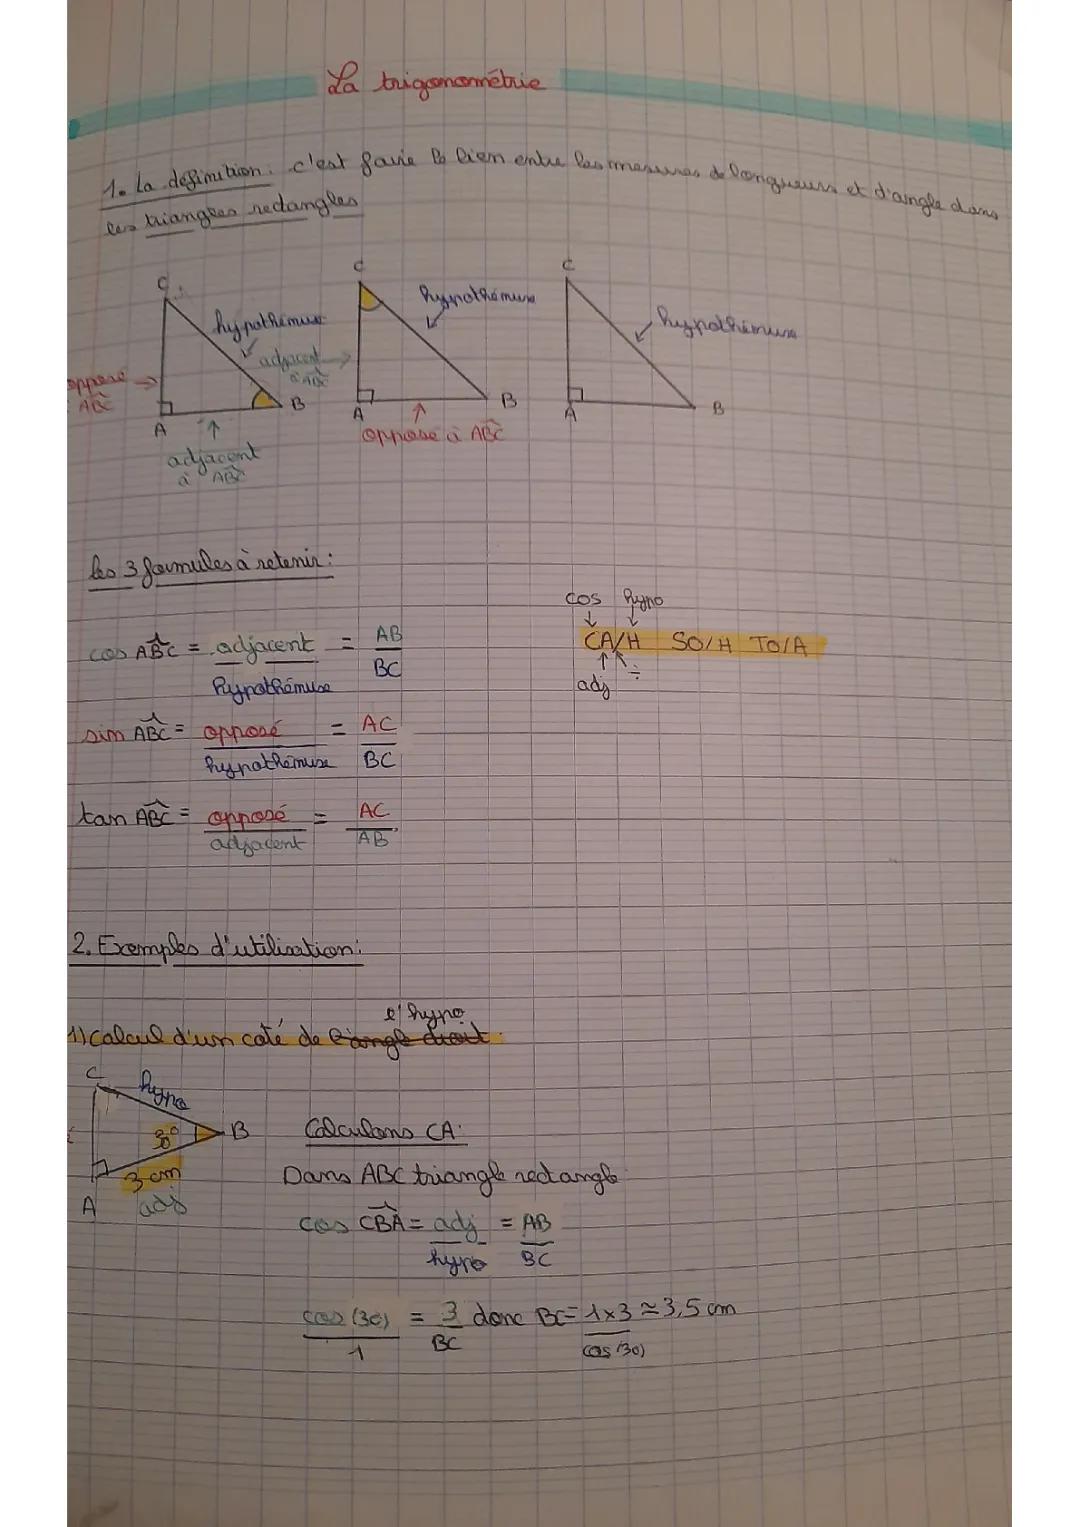 La trigonométrie
1. La définition : c'est faire le lien entre les mesures de longueurs et d'angle dans
les triangles rectangles
C
hypothénuse
opposé
ABC
A
B
adjacent
à ABC
C
hypothénuse
adjacent
à ABC
A
B
opposé à ABC
C
hypothénuse
A
B
les 3 formules à retenir :
cos ABC = adjacent = AB
hypothénuse BC
sin ABC = opposé = AC
hypothénuse BC
tan ABC = opposé = AC
adjacent AB
cos hypo
CA/H SO/H TO/A
adj ÷
2. Exemples d'utilisation :
l'hypo
1) Calcul d'un coté de l'angle droit
C
hypo
30°
B
3 cm
A
adj
Calculons CA :
Dans ABC triangle rectangle
cos CBA = adj = AB
hypo BC
cos (30) = 3 donc BC = 1×3 ≃ 3,5 cm
1 BC cos (30)